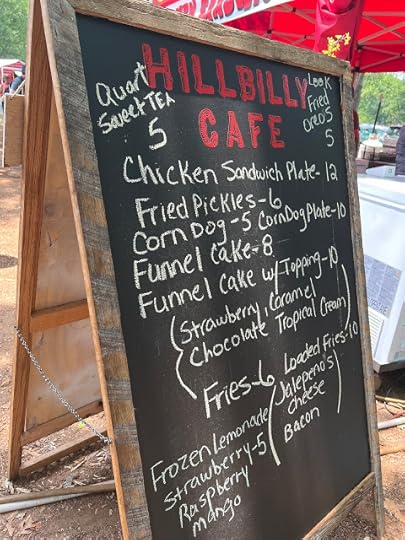 HILLBILLY
CAFE
Quart
Sweet TEA
5
Look
Fried
Oreo's
5
Chicken Sandwich Plate- 12
Fried Pickles- 6
Corn Dog - 5 Corn Dog Plate- 10
Funnel Cake- 8
Funnel Cake w/ Topping - 10
(Strawberry, Caramel
Chocolate Tropical Cream)
Fries- 6
Loaded Fries- 10
(Jalepeno's
cheese
Bacon)
Frozen Lemonade
Strawberry - 5
Raspberry
mango